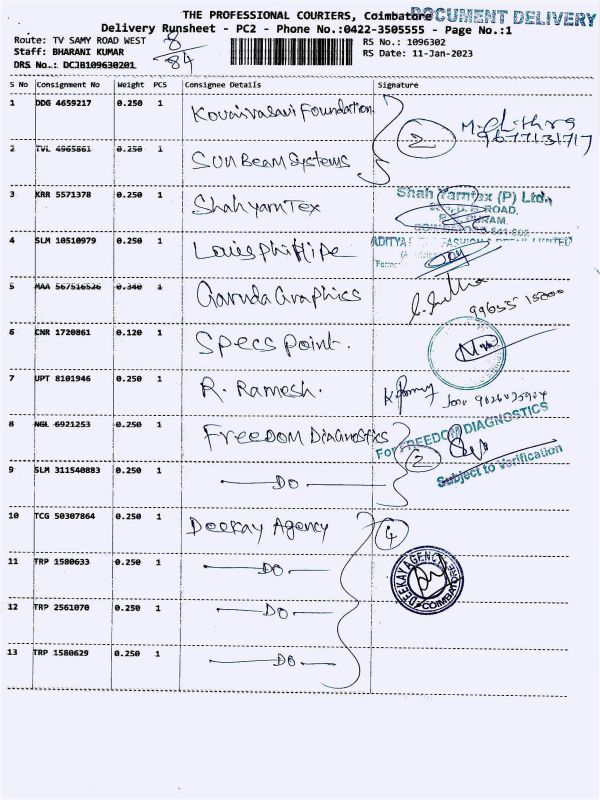 THE PROFESSIONAL COURIERS, Coimbatore DOCUMENT DELIVERY
Delivery Runsheet - PC2 - Phone No.:0422-3505555 - Page No.:1
Route: TV SAMY ROAD WEST
8
84
RS No.: 1096302
Staff: BHARANI KUMAR
RS Date: 11-Jan-2023
DRS No.: DCJB109630201
S No Consignment No Weight PCS Consignee Details Signature
1 DDG 4659217 0.250 1 Kovaivasavi Foundation
2
9677131717
2 TVL 4965861 0.250 1 Sun Beam Systems
3 KRR 5571378 0.250 1 Shah yarn Tex
Shah Yarntex (P) Ltd.,
4 SLM 10510979 0.250 1 Louis Phillipe
5 MAA 567516526 0.340 1 Garuda Graphics
99655 15000
6 CNR 1720861 0.120 1 Specs Point.
7 UPT 8101946 0.250 1 R. Ramesh.
8 NGL 6921253 0.250 1 Freedom Diagnostics
For FREEDOM DIAGNOSTICS
2
Subject to Verification
9 SLM 311540883 0.250 1 — DO —
10 TCG 50307864 0.250 1 Deekay Agency
4
11 TRP 1580633 0.250 1 — DO —
DEEKAY AGENCY
COIMBATORE
12 TRP 2561070 0.250 1 — DO —
13 TRP 1580629 0.250 1 — DO —